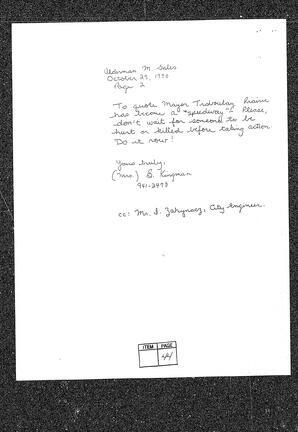 Alderman M. Sales
October 29, 1990
Page 2
To quote Mayor Trobulay Prairie
has become a "speedway". Please,
don't wait for someone to be
hurt or killed before taking action.
Do it now!
Yours truly,
(Mrs.) B. Kingman
941-2490
cc: Mr. I. Zahynacz, City Engineer.
ITEM PAGE
44